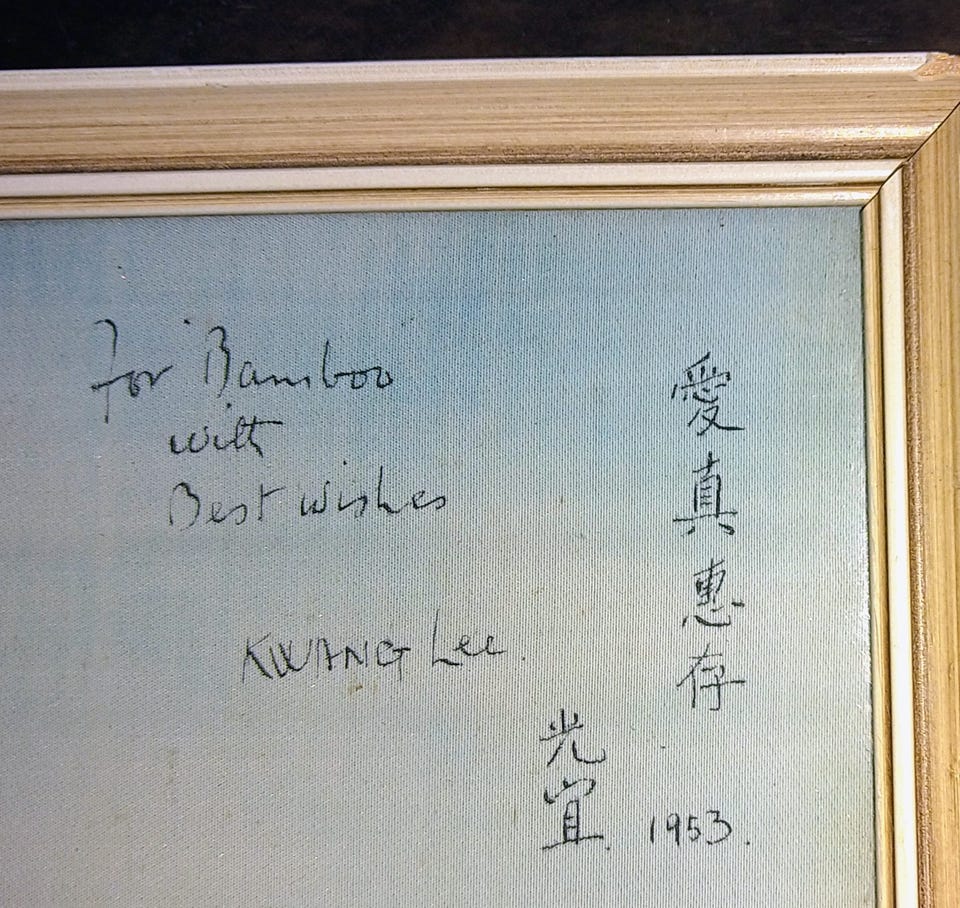 For Bamboo
with
Best wishes
KWANG Lee.
愛真惠存
光宜
1953.